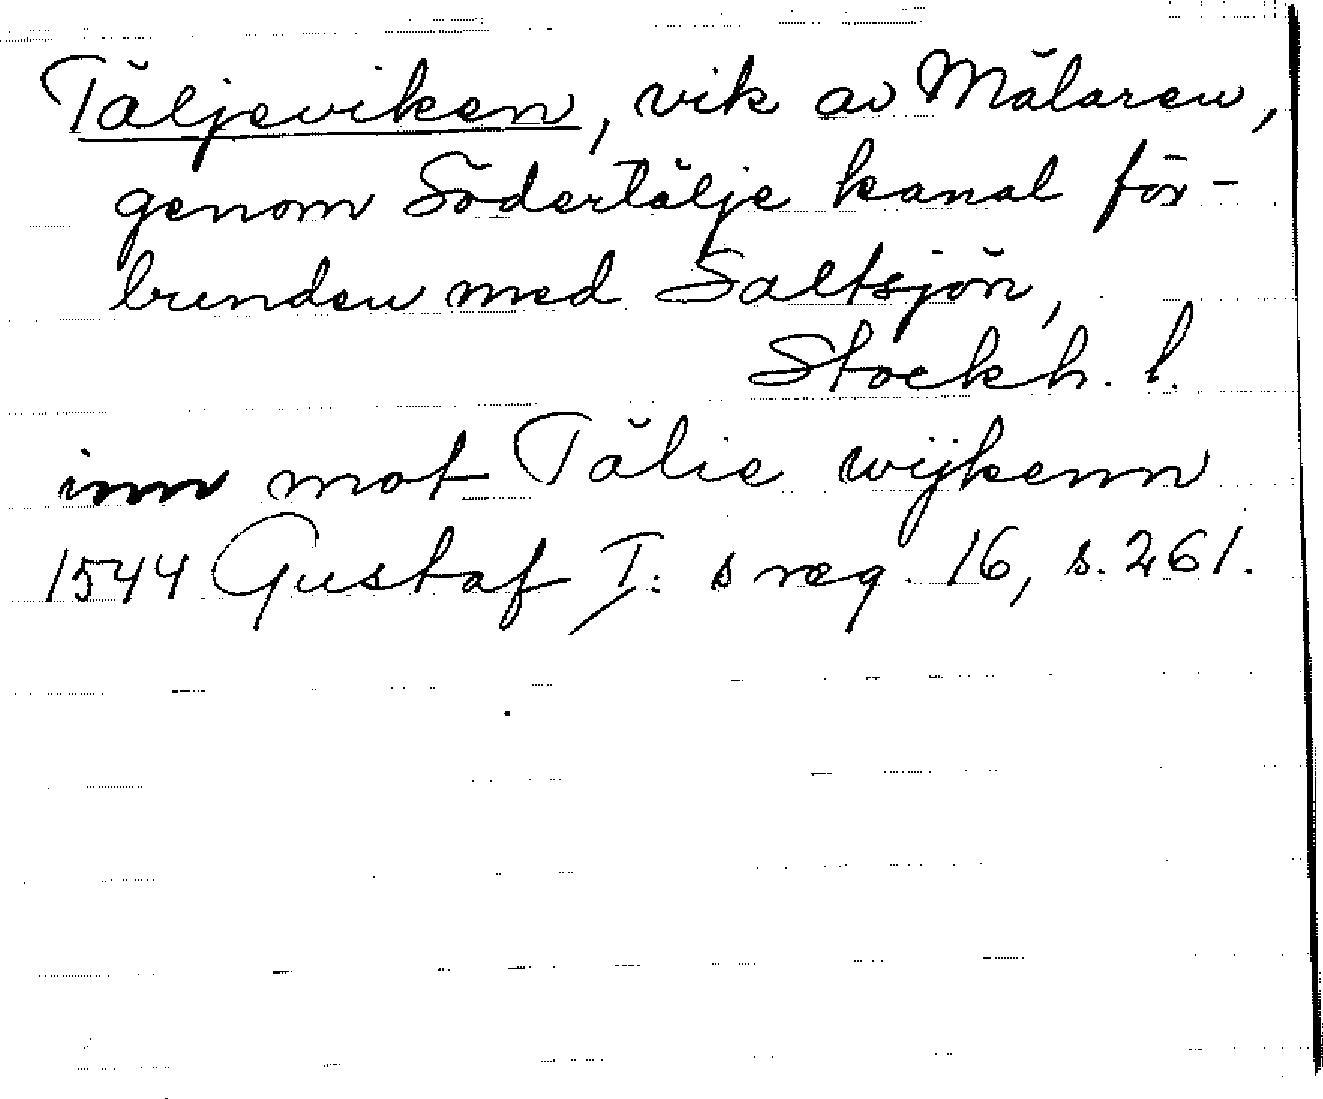 Täljeviken, vik av Mälaren,
genom Södertälje kanal för-
bunden med Saltsjön,
Stockh. l.
inn mot Tälie wijkenn
1544 Gustaf I:s reg. 16, s. 261.